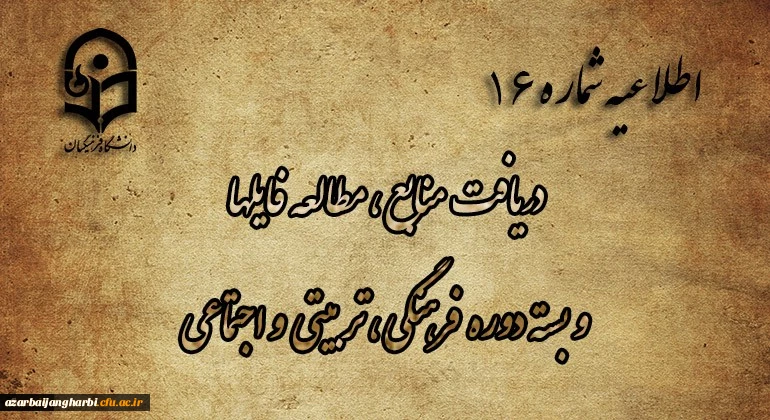 اطلاعیه شماره ۱۶
دانشگاه فرهنگیان
دریافت منابع ، مطالعه فایلها
و بسته دوره فرهنگی ، تربیتی و اجتماعی
azarbaijangharbi.cfu.ac.ir